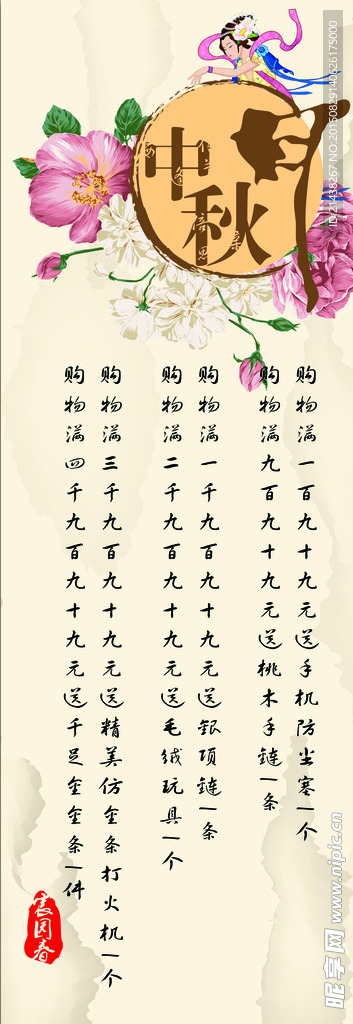 中秋月
购物满一百九十九元送手机防尘塞一个
购物满九百九十九元送桃木手链一条
购物满一千九百九十九元送银项链一条
购物满二千九百九十九元送毛绒玩具一个
购物满三千九百九十九元送精美仿金条打火机一个
购物满四千九百九十九元送千足金金条一件
昵享网 www.nipic.cn